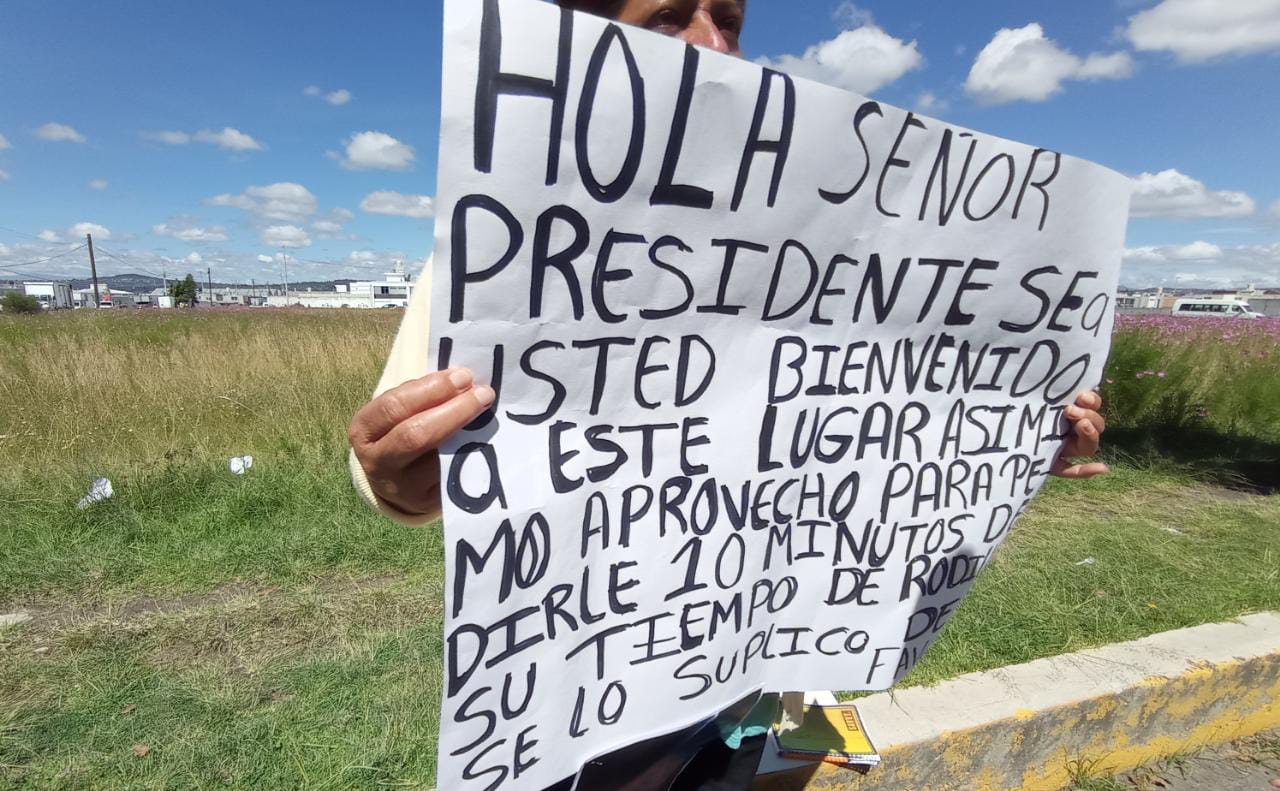 HOLA SEÑOR
PRESIDENTE SEa
USTED BIENVENIDO
a ESTE LUGAR ASIMI
MO APROVECHO PARA PE-
DIRLE 10 MINUTOS DE
SU TIEMPO DE
SE LO SUPLICO DE